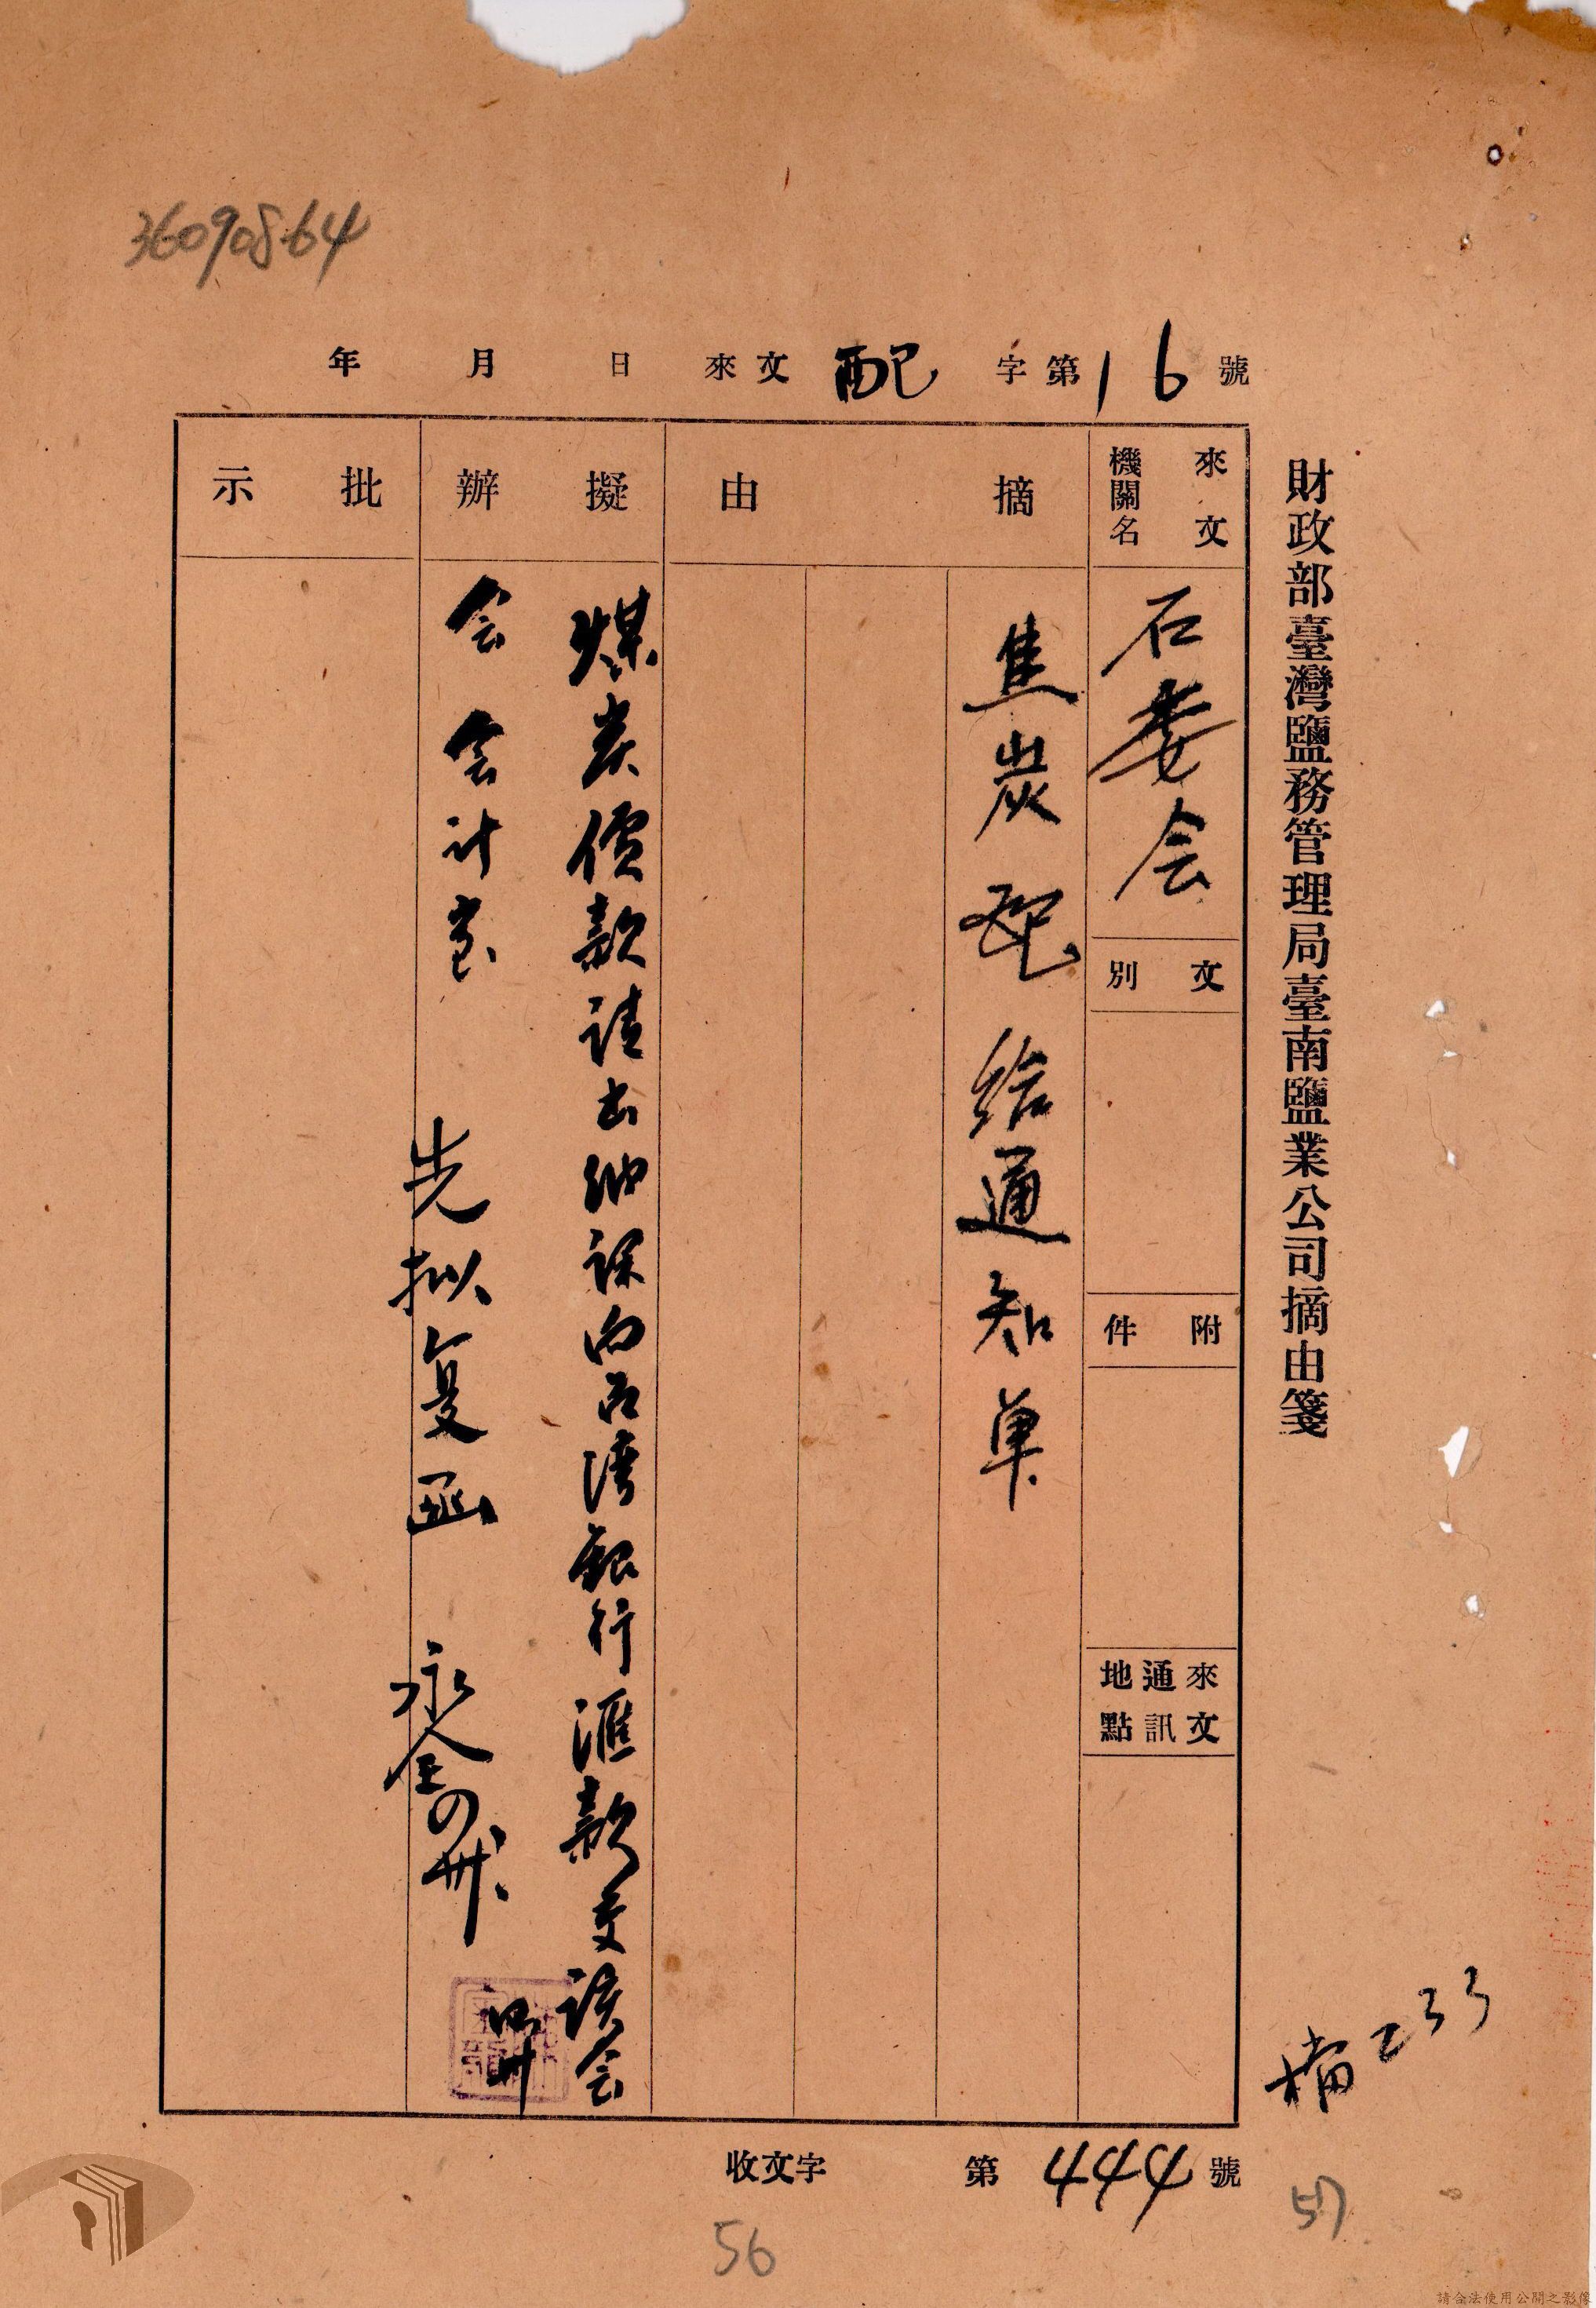 36090864
年 月 日 來文 配 字第 16 號
財政部臺灣鹽務管理局臺南鹽業公司摘由箋
來文機關名
石委会
文別
附件
來文通訊地點
摘由
焦炭配给通知单
擬辦
煤炭價款请出纳课向台湾銀行滙款交该会
会会计室
先拟复函
批示
收文字 第 444 號
補 233
56
57
請合法使用公開之影像